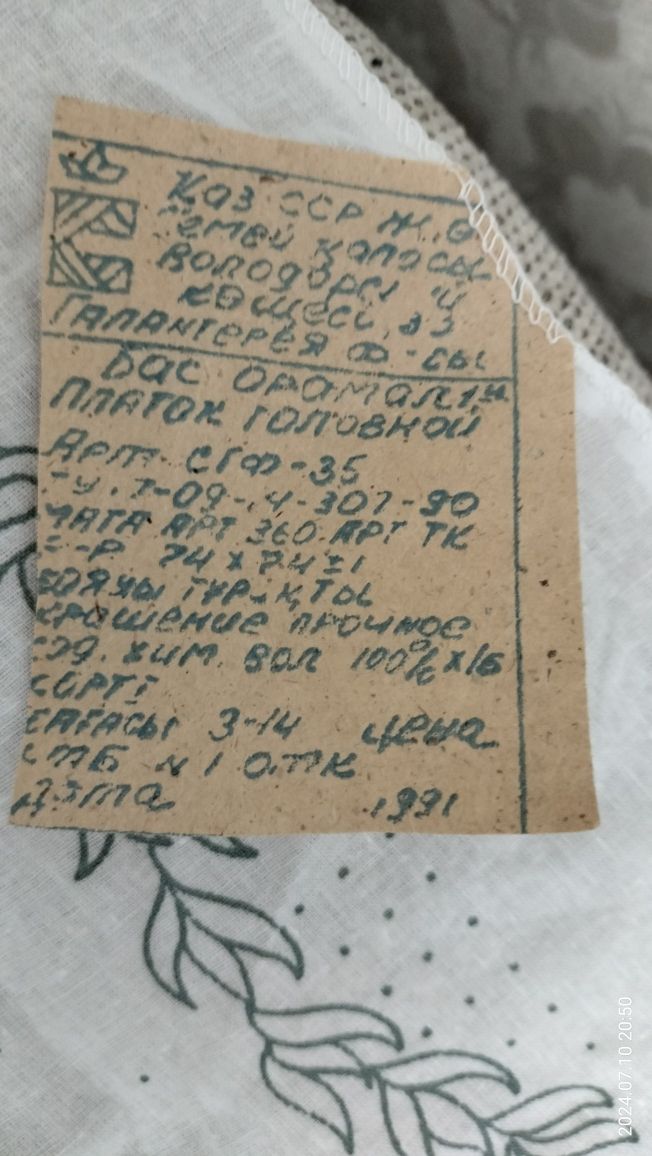 Қаз ССР Ж.Ө
Семей қаласы
Володарский
көшесі, 33
Галантерея ф-сы
Бас орамалын
Платок головной
Арт. СГФ-35
ТУ.7-09-14-307-90
АРТ 360 АРТ ТК
Р-Р 74 х 74 ±1
Бояуы тұрақты
крашение прочное
сод. хим. вол 100% Х/Б
сорт I
бағасы 3-14 цена
СТБ № 1 ОТК
Дата 1991
2024.07.10 20:50